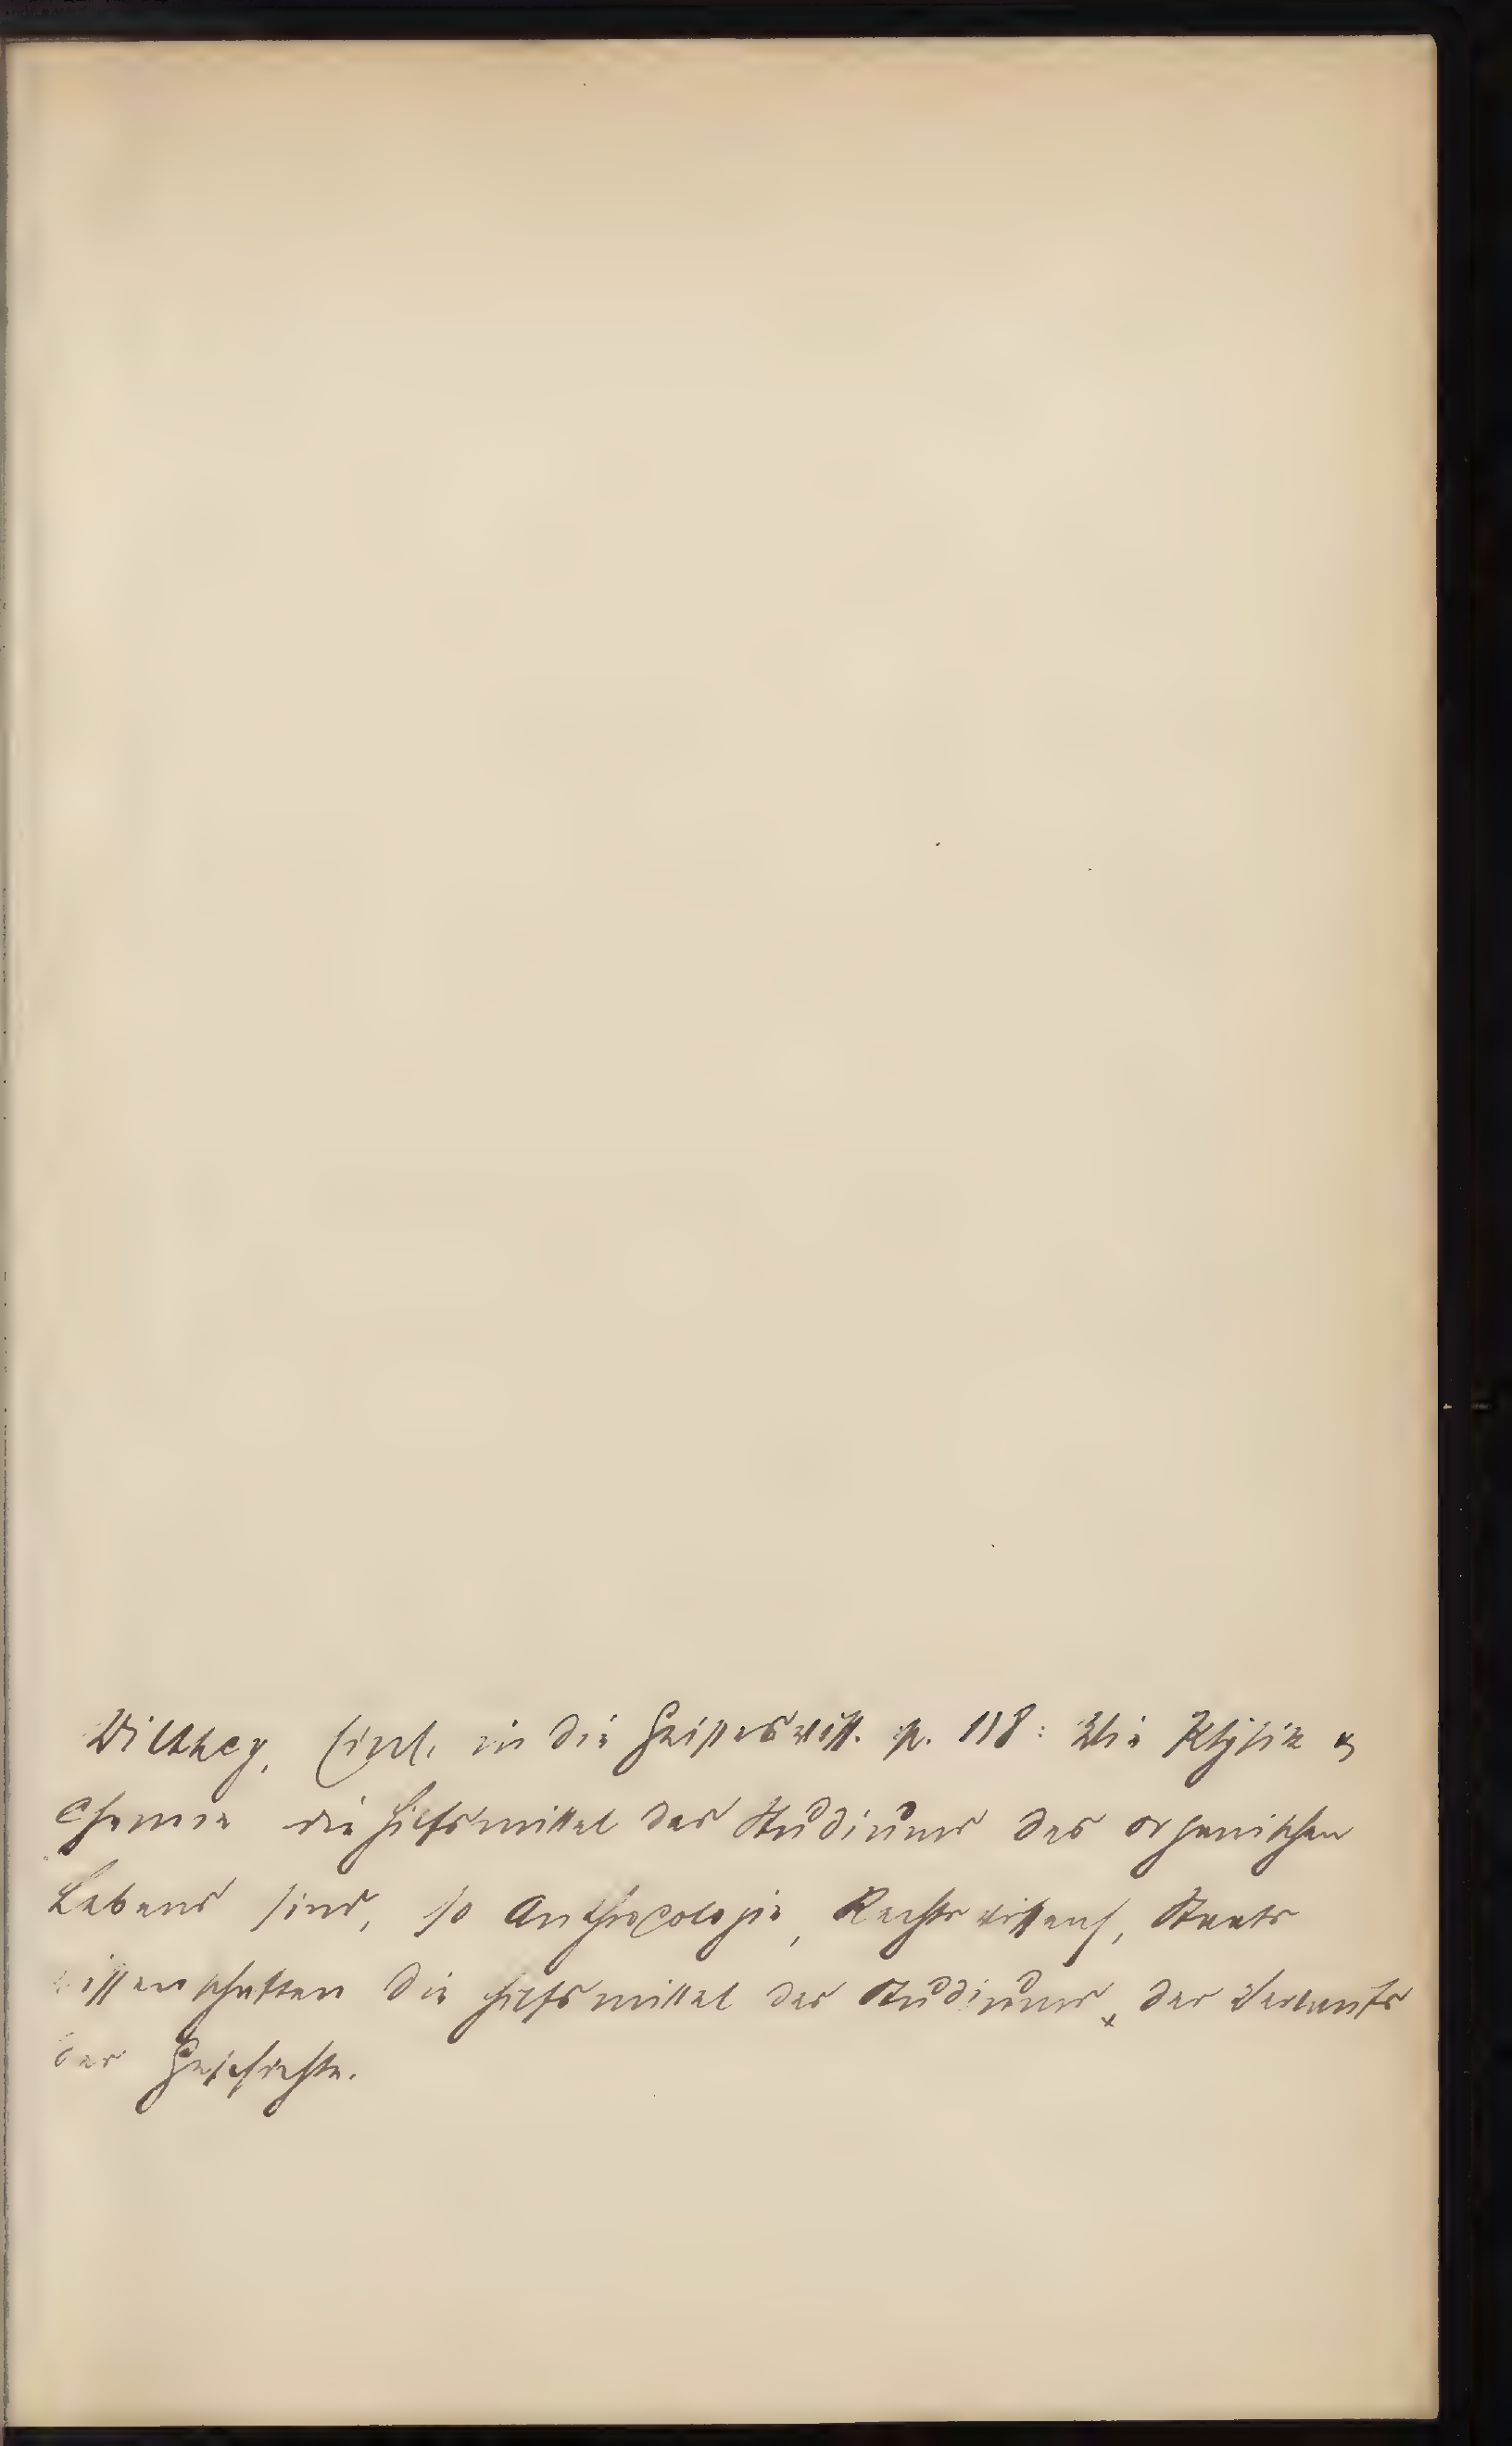 Dilthey, Einl. in die Geisteswiss. p. 118: Wie Physik &
Chemie die Hilfsmittel des Studiums des organischen
Lebens sind, so Anthropologie, Rechtswissensch, Staats
wissenschaften die Hilfsmittel des Studiums des Verlaufs
der Geschichte.